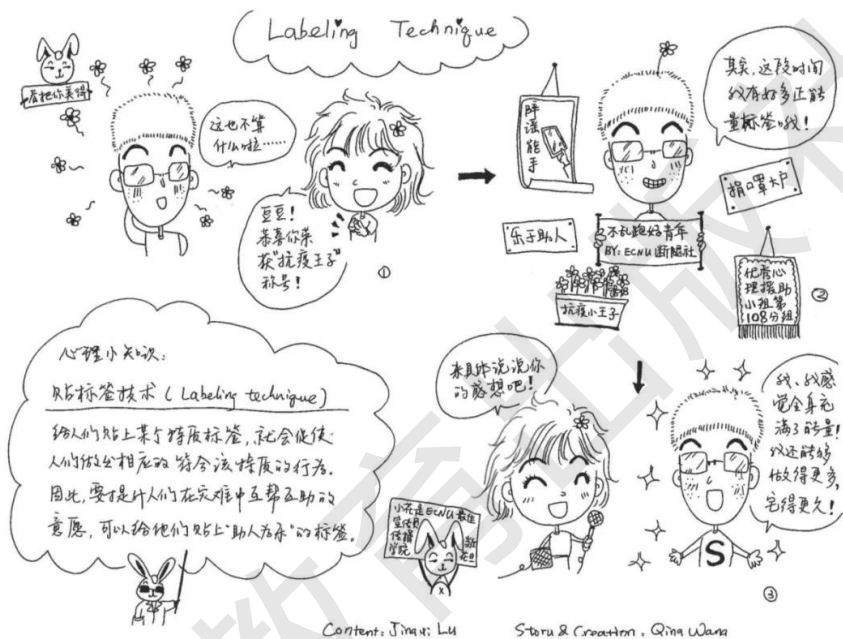 Labeling Technique
看把你美得
这也不算
什么啦……
豆豆!
恭喜你荣
获"抗疫王子"
称号!
①
辟谣能手
其实,这段时间
我有好多正能
量标签哦!
捐口罩大户
乐于助人
不乱跑好青年
BY: ECNU 断腿社
抗疫小王子
优秀心
理援助
小组第
108分组
②
心理小知识:
贴标签技术 (Labeling technique)
给人们贴上某个特质标签,就会促使
人们做出相应的符合该特质的行为.
因此,要提升人们在灾难中互帮互助的
意愿,可以给他们贴上"助人为乐"的标签.
来具体说说你
的感想吧!
小花是ECNU最佳
传播
学院
我、我感
觉全身充
满了能量!
我还能够
做得更多,
宅得更久!
S
③
Content: Jingyi Lu
Story & Creation: Qing Wang
教育出版社